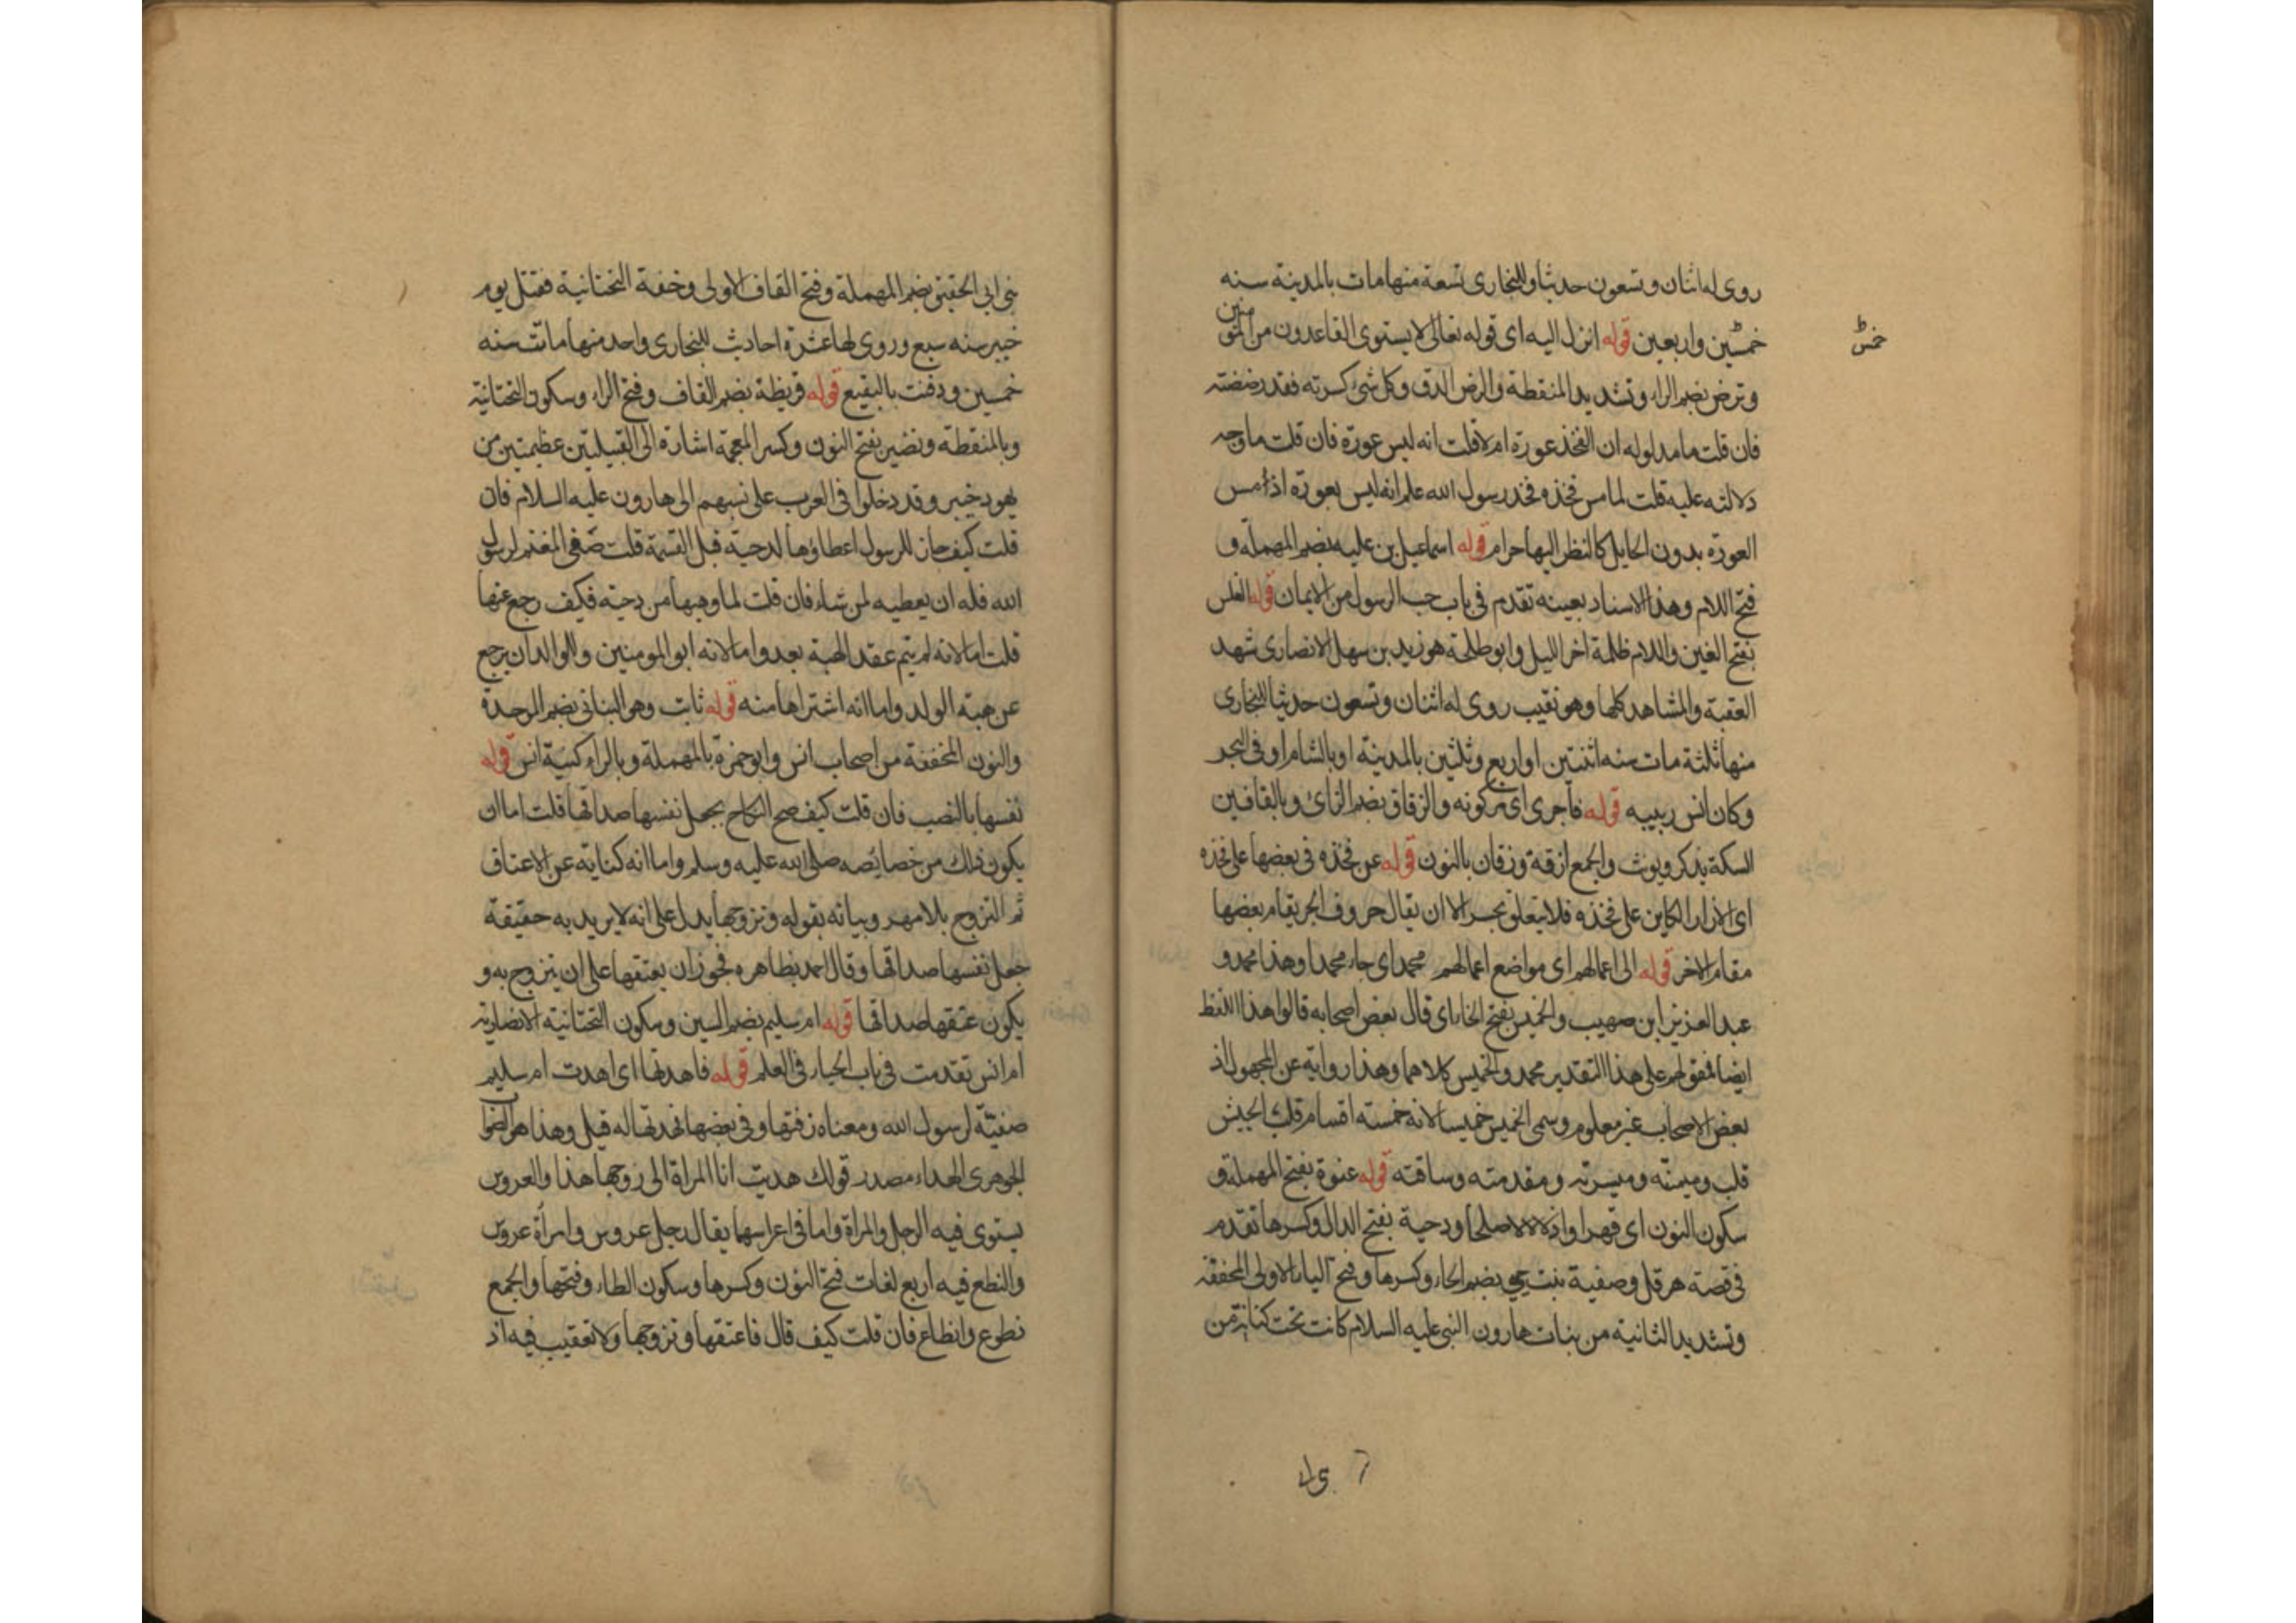 روى له اثنان وتسعون حديثا وللبخارى تسعة منها مات بالمدينة سنه
خمسين واربعين قوله انزل اليه اى قوله تعالى لا يستوى القاعدون من المؤمنين
خمس
وترض بضم الراء وتشديد المنقطة والرض الدق وكل شئ كسرته فقد رضضته
فان قلت ما مدلوله ان الفخذ عورة ام لا قلت انه ليس عورة فان قلت ما وجه
دلالته عليه قلت لما مس فخذه فخذ رسول الله علم انه ليس بعورة اذ مس
العورة بدون الحايل كالنظر اليها حرام قوله اسماعيل بن عليه بضم المهملة و
فتح اللام وهذا الاسناد بعينه تقدم فى باب حب الرسول من الايمان قوله الغلس
بفتح الغين واللام ظلمة اخر الليل وابو طلحة هو زيد بن سهل الانصارى شهد
العقبة والمشاهد كلها وهو نقيب روى له اثنان وتسعون حديثا للبخارى
منها ثلثة مات سنه اثنتين او اربع وثلثين بالمدينة او بالشام او فى البحر
وكان انس ربيبه قوله فاجرى اى مركوبه والزقاق بضم الزاى وبالقافين
السكة يذكر ويونث والجمع ازقة وزقان بالنون قوله عن فخذه فى بعضها على فخذه
اى الازار الكاين على فخذه فلا يتعلق بحسر الا ان يقال حروف الجر يقام بعضها
مقام الاخر قوله الى اعمالهم اى مواضع اعمالهم محمد اى جاء محمد او هذا محمد و
عبد العزيز ابن صهيب والخميس بفتح الخا اى قال بعض اصحابه قالوا هذا اللفظ
ايضا فمقولهم على هذا التقدير محمد والخميس كلاهما وهذا رواية عن المجهول اذ
بعض الاصحاب غير معلوم وسمى الخميس خميسا لانه خمسته اقسام قلب الجيش
قلب وميمنته وميسرته ومقدمته وساقته قوله عنوة بفتح المهملة و
سكون النون اى قهرا واذلالا لا صلحا ودحية بفتح الدال وكسرها تقدم
فى قصة هرقل وصفية بنت حيي بضم الحاء وكسرها وفتح الياء الاولى المخففة
وتشديد الثانية من بنات هارون النبى عليه السلام كانت تحت كنانة بن
بنى ابى الحقيق بضم المهملة وفتح القاف الاولى وخفة التحتانية فقتل يوم
خيبر سنه سبع وروى لها عشرة احاديث للبخارى واحد منها ماتت سنه
خمسين ودفنت بالبقيع قوله قريظة بضم القاف وفتح الراء وسكون التحتانية
وبالمنقطه ونضير بفتح النون وكسر المعجمة اشارة الى القبيلتين عظيمتين من
يهود خيبر وقد دخلوا فى العرب على نسبهم الى هارون عليه السلام فان
قلت كيف جاز للرسول اعطاؤها لدحية قبل القسمة قلت صفى المغنم لرسول
الله فله ان يعطيه لمن شاء فان قلت لما وهبها من دحية فكيف رجع عنها
قلت اما لانه لم يتم عقد الهبة بعد واما لانه ابو المومنين والوالد ان يرجع
عن هبة الولد واما انه اشتراها منه قوله ثابت وهو البنانى بضم الموحدة
والنون المخففة من اصحاب انس وابو حمزة بالمهملة وبالراء كنية انس قوله
نفسها بالنصب فان قلت كيف صح النكاح بجعل نفسها صداقها قلت اما ان
يكون ذلك من خصائصه صلى الله عليه وسلم واما انه كناية عن الاعتاق
ثم التزوج بلا مهر وبيانه بقوله وتزوجها يدل على انه لا يريد به حقيقة
جعل نفسها صداقها وقال احمد بظاهره فجوز ان يعتقها على ان يتزوج به و
يكون عتقها صداقها قوله ام سليم بضم السين وسكون التحتانية الانصارية
ام انس تقدمت فى باب الحياء فى العلم قوله فاهدتها اى اهدت ام سليم
صفية لرسول الله ومعناه زفتها وفى بعضها فهدتها له قيل وهذا هو الصواب
الجوهرى الهداء مصدر قولك هديت انا المراة الى زوجها هذا والعروس
يستوى فيه الرجل والمراة واما فى اعراسهما يقال رجل عروس وامرأة عروس
والنطع فيه اربع لغات فتح النون وكسرها وسكون الطاء وفتحها والجمع
نطوع وانطاع فان قلت كيف قال فاعتقها وتزوجها ولا تعقيب فيه اذ